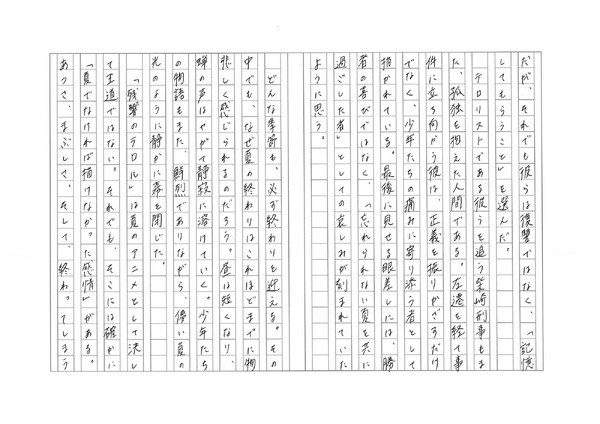 だが、それでも彼らは復讐ではなく、「記憶
してもらうこと」を選んだ。
テロリストである彼らを追う柴崎刑事もま
た、孤独を抱えた人間である。左遷を経て事
件に立ち向かう彼は、正義を振りかざすだけ
でなく、少年たちの痛みに寄り添う者として
描かれている。最後に見せる眼差しには、勝
者の喜びではなく、「忘れられない夏を共に
過ごした者」としての哀しみが刻まれていた
ように思う。
どんな季節も、必ず終わりを迎える。その
中でも、なぜ夏の終わりはこれほどまでに物
悲しく感じられるのだろう。昼は短くなり、
蝉の声はやがて静寂に溶けていく。少年たち
の物語もまた、鮮烈でありながら、儚い夏の
光のように静かに幕を閉じた。
『残響のテロル』は夏のアニメとして決し
て王道ではない。それでも、そこには確かに
「夏でなければ描けなかった感情」がある。
あつさ、まぶしさ、そして、終わってしまう